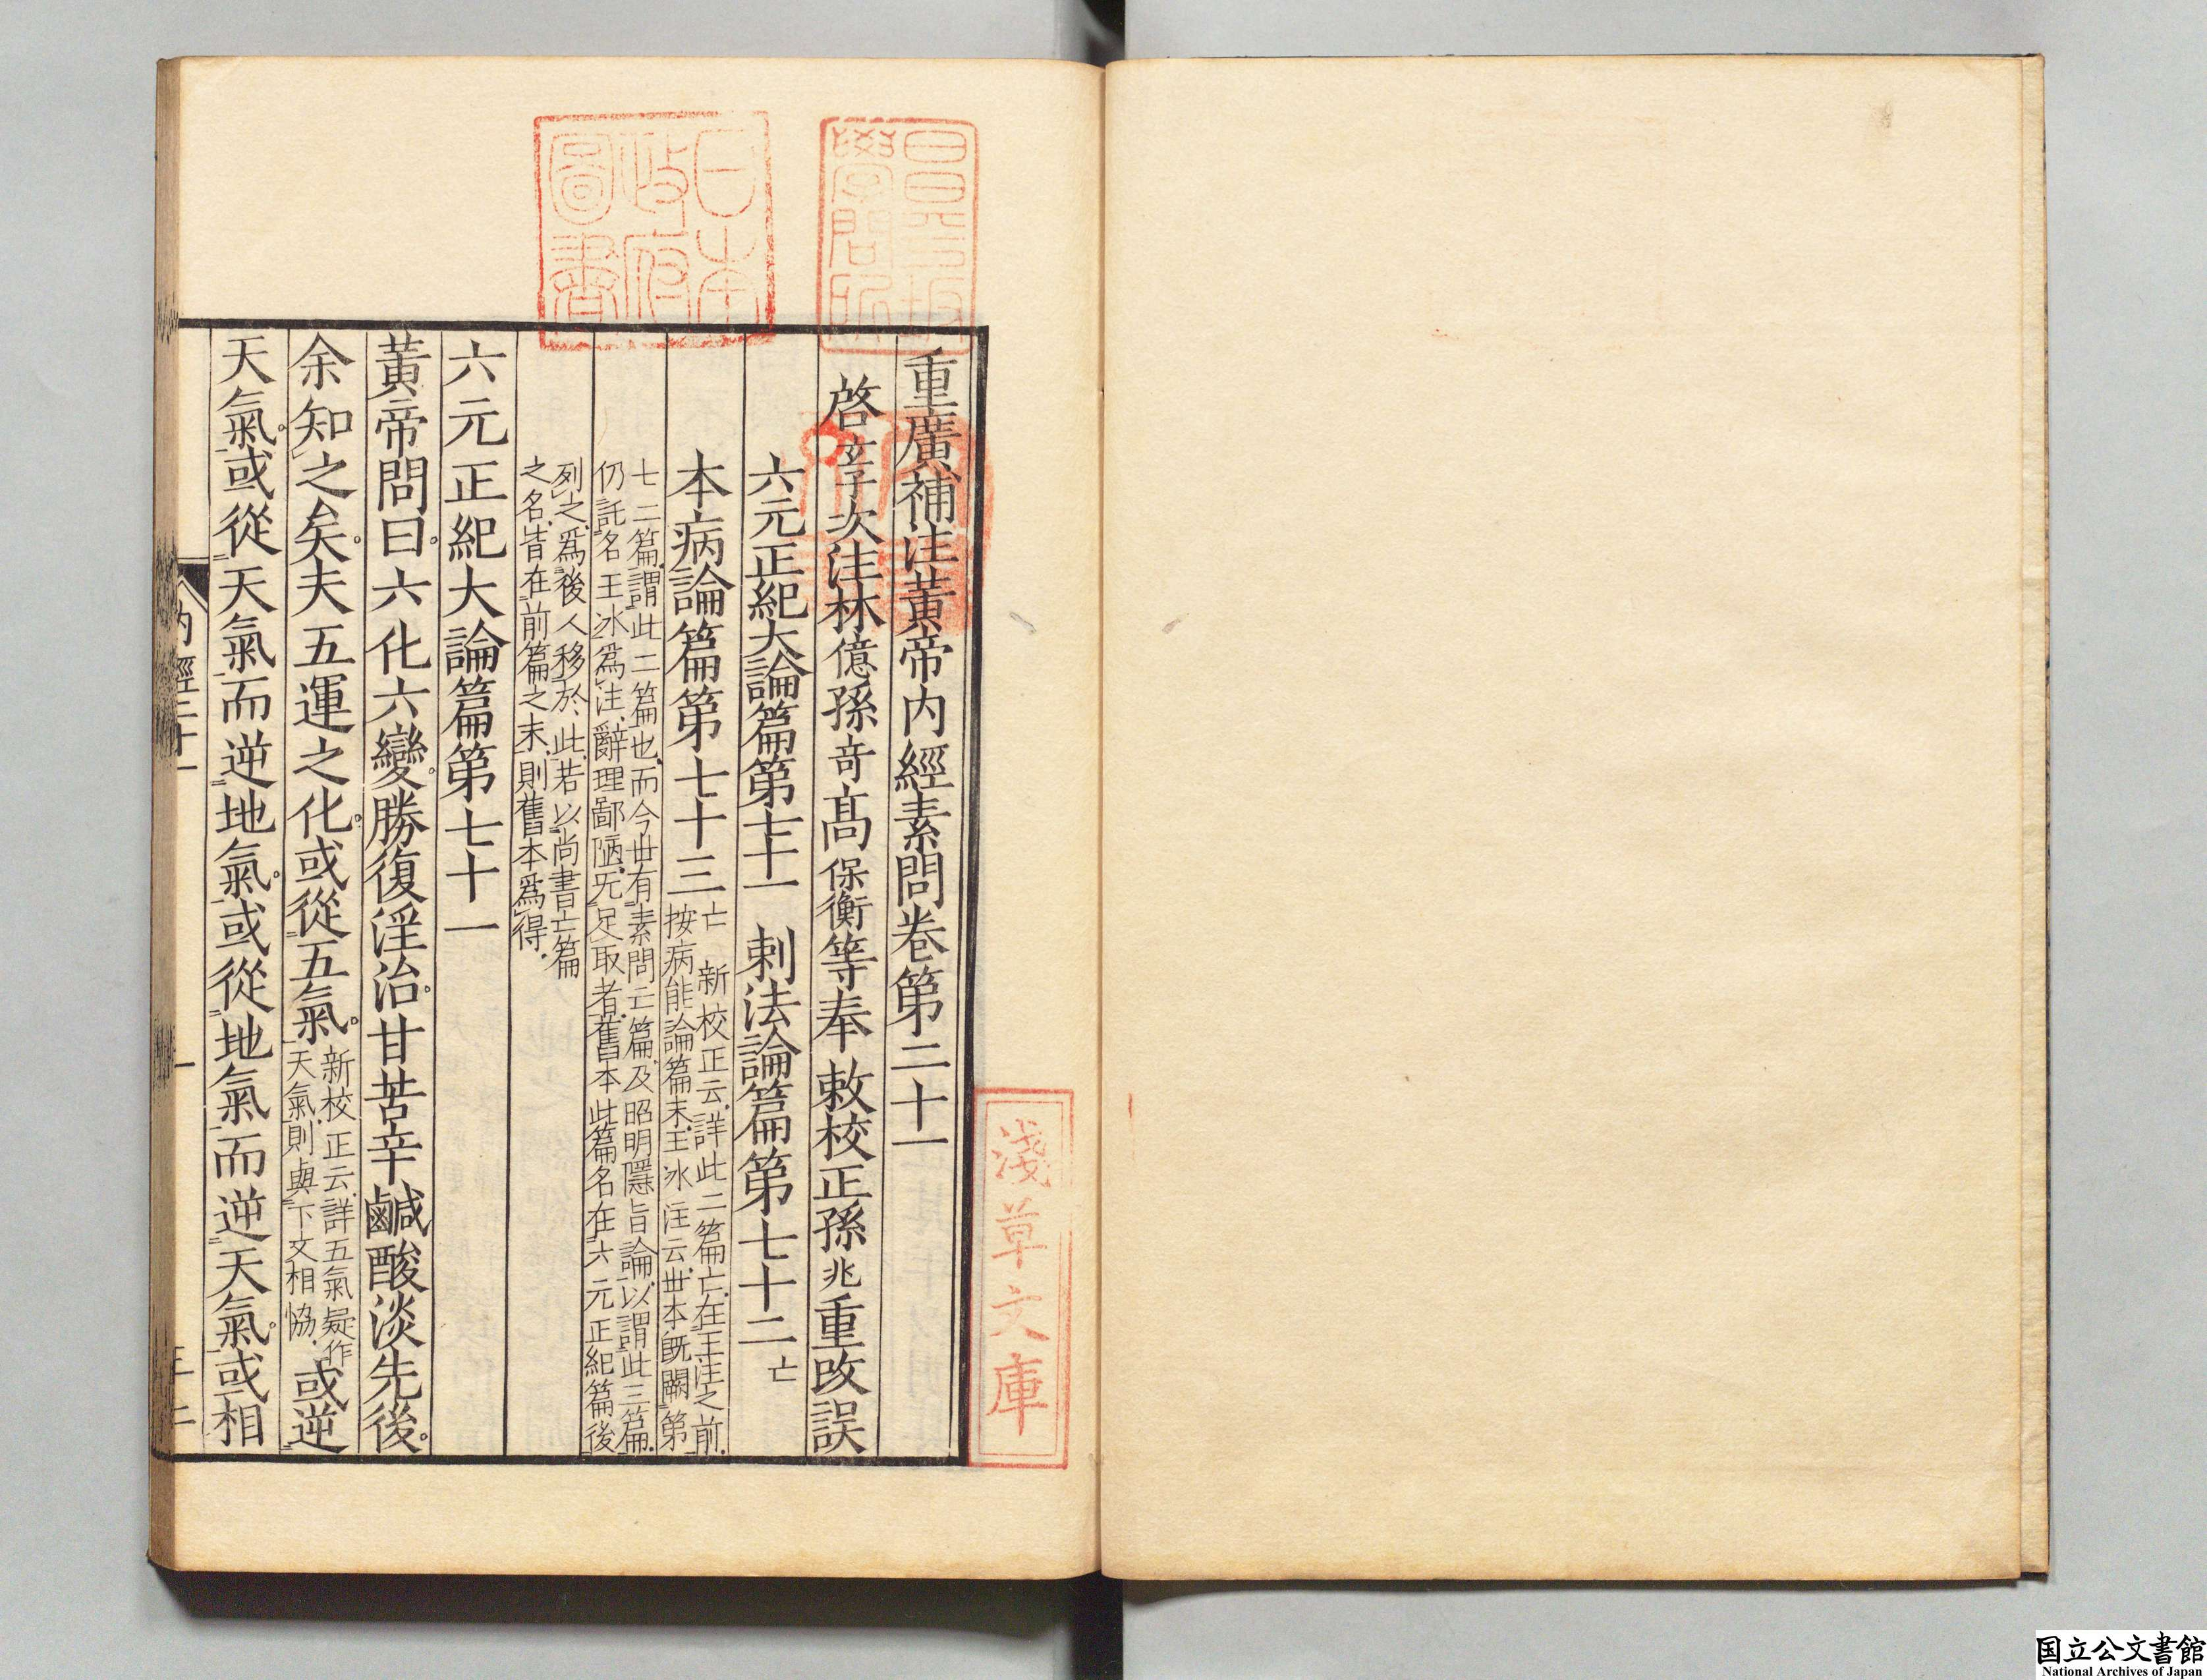 重廣補注黃帝内經素問卷第二十一
啓玄子次注林億孫竒髙保衡等奉　敕校正孫兆重改誤
六元正紀大論篇第七十一　刺法論篇第七十二亡
本病論篇第七十三亡　新校正云詳此二篇亡在王注之前
按病能論篇末王冰注云世本既闕第
七二篇謂此二篇也而今世有素問亡篇及昭明隱旨論以謂此三篇
仍託名王冰爲注辭理鄙陋无足取者舊本此篇名在六元正紀篇後
列之爲後人移於此若以尚書亡篇
之名皆在前篇之末則舊本爲得
六元正紀大論篇第七十一
黃帝問曰六化六變勝復淫治甘苦辛鹹酸淡先後
余知之矣夫五運之化或從五氣新校正云詳五氣疑作天氣則與下文相協或逆
天氣或從天氣而逆地氣或從地氣而逆天氣或相
内經二十一
一
昌平坂學問所
日本政府圖書
淺草文庫
国立公文書館
National Archives of Japan